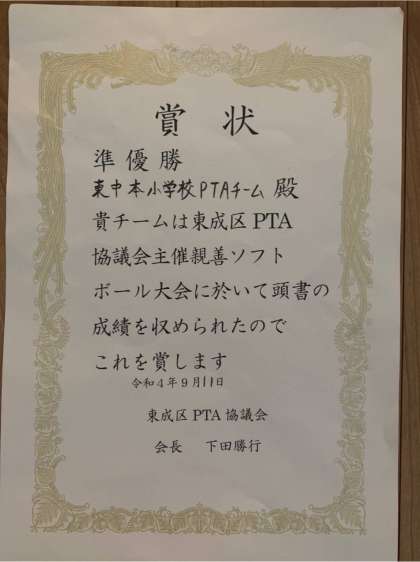 賞状
準優勝
東中本小学校PTAチーム 殿
貴チームは東成区 PTA
協議会主催親善ソフト
ボール大会に於いて頭書の
成績を収められたので
これを賞します
令和4年9月11日
東成区 PTA 協議会
会長 下田勝行